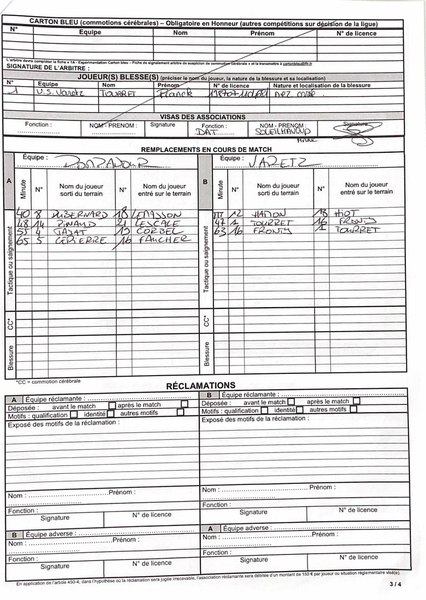 CARTON BLEU (commotions cérébrales) – Obligatoire en Honneur (autres compétitions sur décision de la ligue)
N° Equipe Nom Prénom N° de licence
SIGNATURE DE L'ARBITRE :
JOUEUR(S) BLESSE(S) (préciser le nom du joueur, la nature de la blessure et sa localisation)
N° Equipe Nom Prénom N° de licence Nature et localisation de la blessure
1 U.S. Varetz TOURRET Franck
VISAS DES ASSOCIATIONS
Fonction : NOM - PRENOM : Signature Fonction : DAT NOM - PRENOM : Signature
REMPLACEMENTS EN COURS DE MATCH
A Équipe : POMPADOUR B Équipe : VARETZ
Minute N° Nom du joueur sorti du terrain N° Nom du joueur entré sur le terrain Minute N° Nom du joueur sorti du terrain N° Nom du joueur entré sur le terrain
Tactique ou saignement
40 8 18
14 PINAUD LESCALE 1 TOURRET 16 FRONTY
4 CORBEL 63 16 FRONTY 1 TOURRET
65 5 16 FAUCHER
CC*
Blessure
*CC = commotion cérébrale
RÉCLAMATIONS
A Équipe réclamante :
Déposée : avant le match après le match
Motifs : qualification identité autres motifs
Exposé des motifs de la réclamation :
Nom : Prénom :
Fonction :
Signature N° de licence
B Équipe adverse :
Nom : Prénom :
Fonction :
Signature N° de licence
B Équipe réclamante :
Déposée : avant le match après le match
Motifs : qualification identité autres motifs
Exposé des motifs de la réclamation :
Nom : Prénom :
Fonction :
Signature N° de licence
A Équipe adverse :
Nom : Prénom :
Fonction :
Signature N° de licence
En application de l'article 450-4, dans l'hypothèse où la réclamation serait jugée irrecevable, l'association réclamante sera débitée d'un montant de 150 € par joueur ou situation réglementaire visé(e).
3 / 4